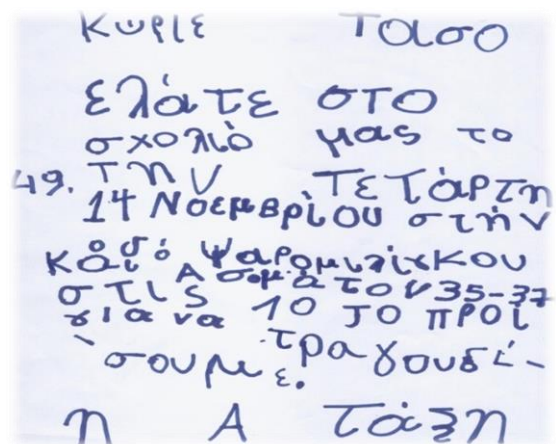 κύριε Τάσο
ελάτε στο
σχολιό μας το
49. την Τετάρτη
14 Νοεμβρίου στήν
οδό Ψαρομιλίγκου
και Ασομάτον 35-37
στις 10 το προί
για να τραγουδί-
σουμε.
η Α τάξη